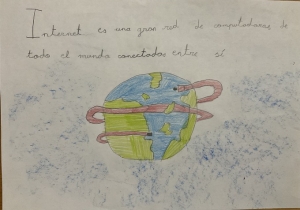 Internet es una gran red de computadoras de
todo el mundo conectadas entre sí